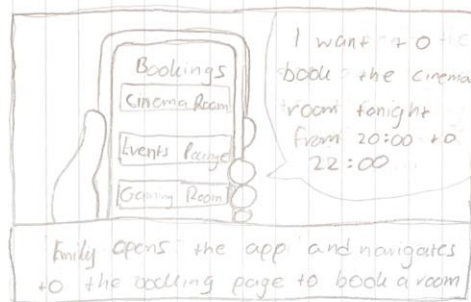 Bookings
Cinema Room
Events Lounge
Gaming Room
I want to
book the cinema
room tonight
from 20:00 to
22:00
Emily opens the app and navigates
to the booking page to book a room